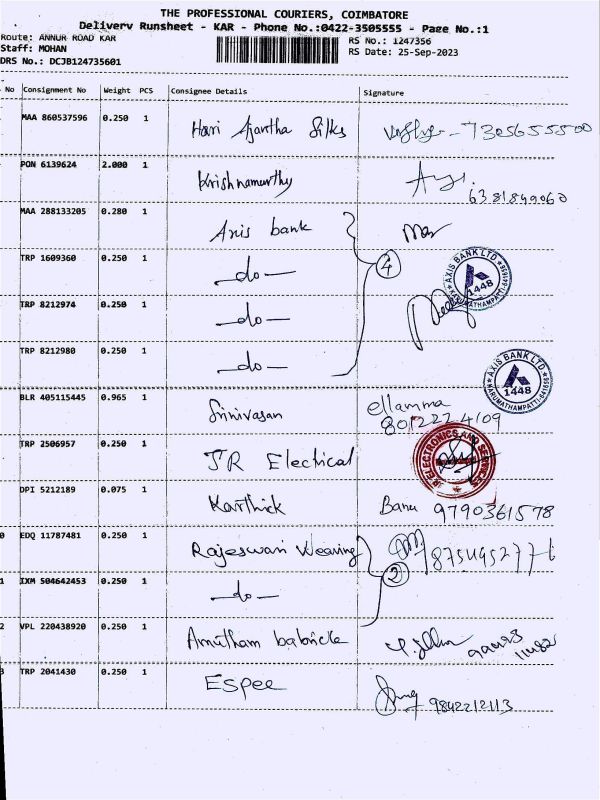 THE PROFESSIONAL COURIERS, COIMBATORE
Delivery Runsheet - KAR - Phone No.:0422-3505555 - Page No.:1
Route: ANNUR ROAD KAR
RS No.: 1247356
Staff: MOHAN
RS Date: 25-Sep-2023
DRS No.: DCJB124735601
No Consignment No Weight PCS Consignee Details Signature
MAA 860537596 0.250 1 Hari Ajantha Silks 7305655500
PON 6139624 2.000 1 Krishnamurthy 6381849060
MAA 288133205 0.280 1 Axis bank
TRP 1609360 0.250 1 -do- 4
AXIS BANK LTD 1448 KARUMATHAMPATTI-641659
TRP 8212974 0.250 1 -do-
TRP 8212980 0.250 1 -do-
AXIS BANK LTD 1448 KARUMATHAMPATTI-641659
BLR 405115445 0.965 1 Srinivasan ellamma
8012274109
TRP 2506957 0.250 1 JR Electrical
JR ELECTRONICS AND SERVICES
DPI 5212189 0.075 1 Karthick Banu 9790361578
0 EDQ 11787481 0.250 1 Rajeswari Weaving
1 IXM 504642453 0.250 1 -do- 2
2 VPL 220438920 0.250 1 Amutham
3 TRP 2041430 0.250 1 Espee 9842212113